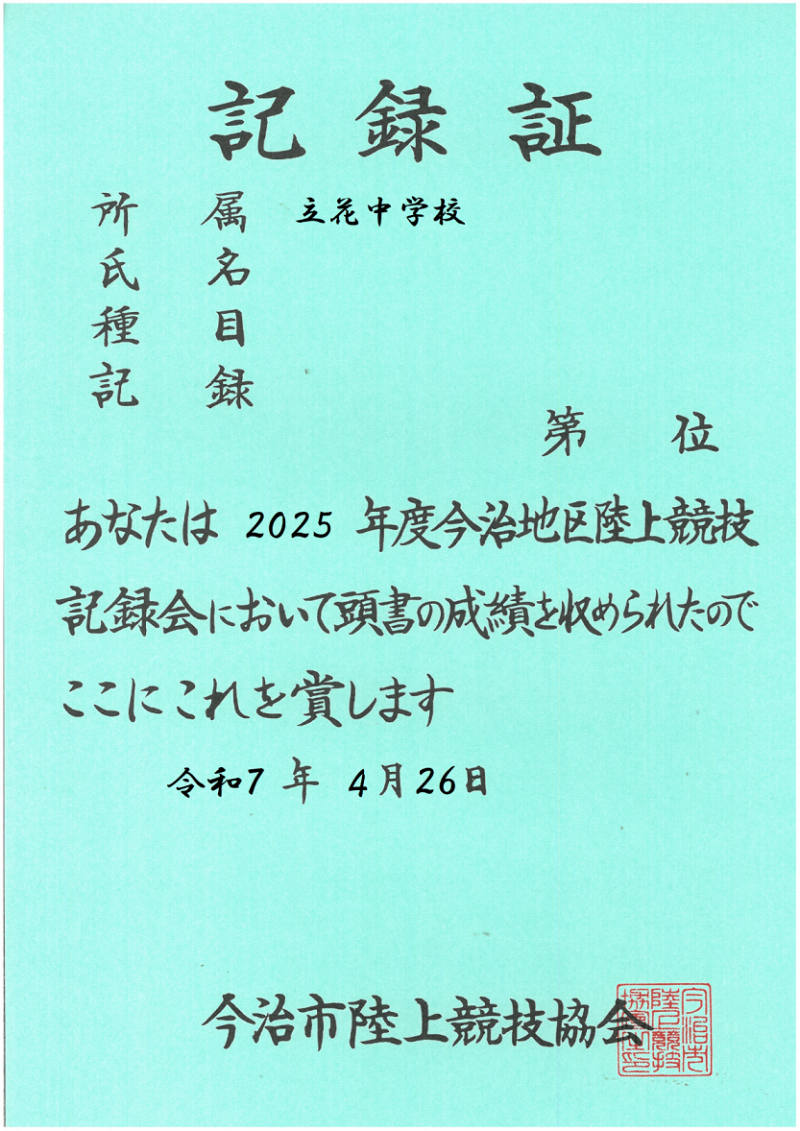 記録証
所属 立花中学校
氏名
種目
記録
第 位
あなたは 2025 年度今治地区陸上競技
記録会において頭書の成績を収められたので
ここにこれを賞します
令和7年 4月26日
今治市陸上競技協会